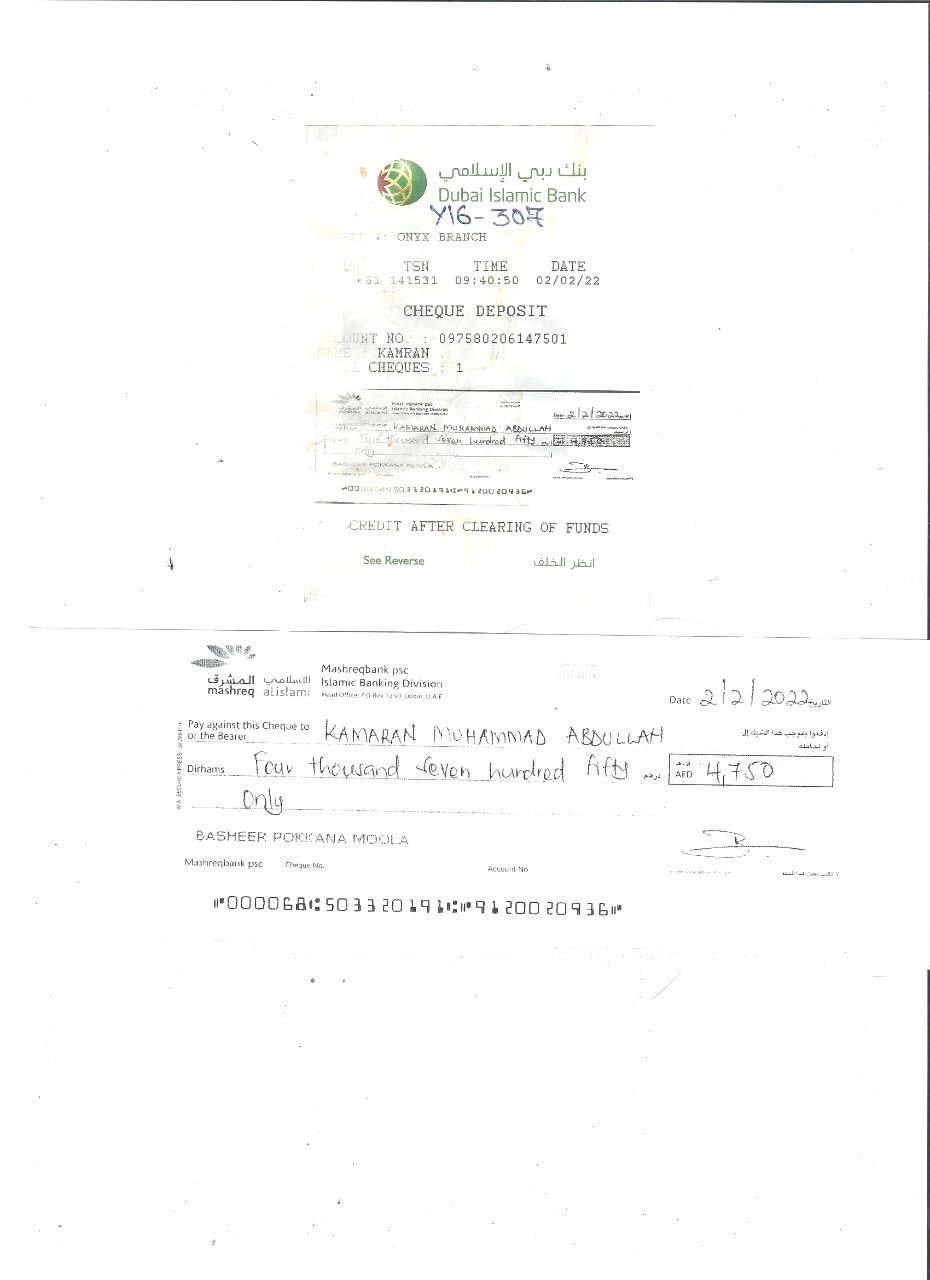 بنك دبي الإسلامي
Dubai Islamic Bank
Y16-307
ONYX BRANCH
TSN TIME DATE
61 141531 09:40:50 02/02/22
CHEQUE DEPOSIT
OUNT NO. : 097580206147501
NAME : KAMRAN
CHEQUES : 1
المشرق الإسلامي
Mashreqbank psc
Islamic Banking Division
Date 2/2/2022
KAMARAN MUHAMMAD ABDULLAH
Four thousand Seven hundred fifty 4,750
Only
BASHEER POKKANA MOOLA
⑈000068⑆503320191⑆⑈9120020936⑈
CREDIT AFTER CLEARING OF FUNDS
See Reverse انظر الخلف
المشرق الإسلامي
mashreq al islami
Mashreqbank psc
Islamic Banking Division
Head Office, P.O Box 1250, Dubai, U.A.E
Date 2/2/2022 التاريخ
Pay against this Cheque to KAMARAN MUHAMMAD ABDULLAH إدفعوا بموجب هذا الشيك إلى
or the Bearer أو لحامله
Dirhams Four thousand Seven hundred fifty درهم د.إ. AED 4,750
Only
BASHEER POKKANA MOOLA
Mashreqbank psc Cheque No. Account No
⑈000068⑆503320191⑆⑈9120020936⑈